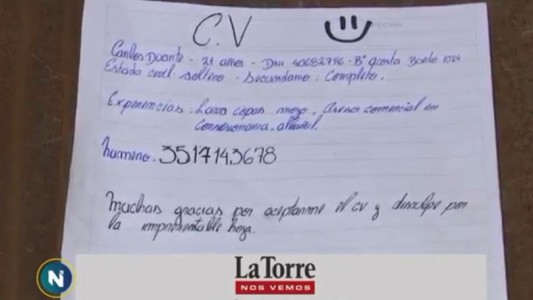 C.V
Carlos Duarte - 21 años - DNI 40682786 - Bº
Estado civil soltero - Secundario Completo.
Experiencias. Lava copas mozo, comercial en
albañil.
Numero. 3517143678
Muchas gracias por aceptarme el CV y disculpe por
la impresentable hoja.
N
La Torre
NOS VEMOS